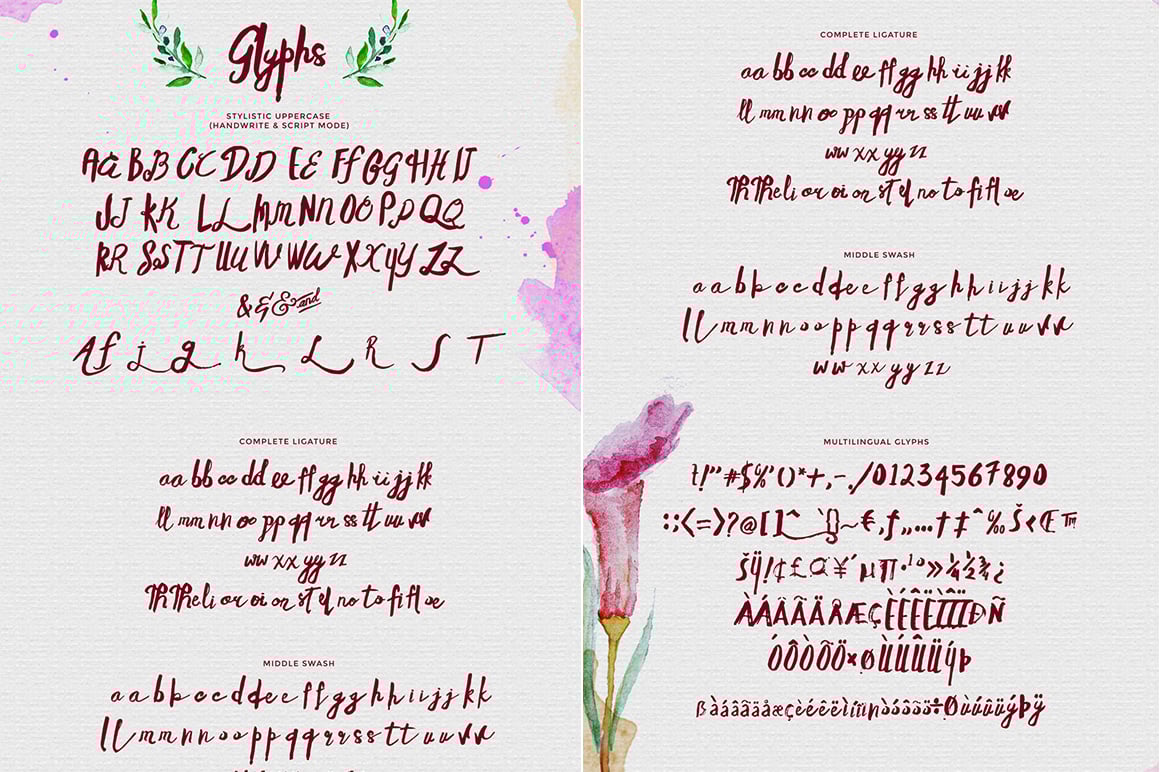 Glyphs
STYLISTIC UPPERCASE
(HANDWRITE & SCRIPT MODE)
AaBBCCDDEEFfGGHHIJ
JJKKLLMmNNOOPPQQ
RRSSTTUUVVWWXXYYZZ
&&&and
Af j g k L R S T
COMPLETE LIGATURE
aa bb cc dd ee ff gg hh ii jj kk
ll mm nn oo pp qq rr ss tt uu vv
ww xx yy zz
Th Th eli or oi on st ef no to fi fl oe
MIDDLE SWASH
a a b b c c d d e e f f g g h h i i j j k k
l l m m n n o o p p q q r r s s t t u u v v
COMPLETE LIGATURE
aa bb cc dd ee ff gg hh ii jj kk
ll mm nn oo pp qq rr ss tt uu vv
ww xx yy zz
Th Th eli or oi on st ef no to fi fl oe
MIDDLE SWASH
a a b b c c d d e e f f g g h h i i j j k k
l l m m n n o o p p q q r r s s t t u u v v
w w x x y y z z
MULTILINGUAL GLYPHS
!"#$%'()*+,-./01234567890
:;<=>?@[]^_`{}~€,ƒ„…†‡ˆ‰Š‹Œ™
šŸ!¢£¤¥´µ¶·¹º»¼½¾¿
ÀÁÂÃÄÅÆÇÈÉÊËÌÍÎÏÐÑ
ÓÔÒÕÖ×ØÙÚÛÜýÞ
ßàáâãäåæçèéêëìíîïñòóôõö÷Øùúûüýþÿ